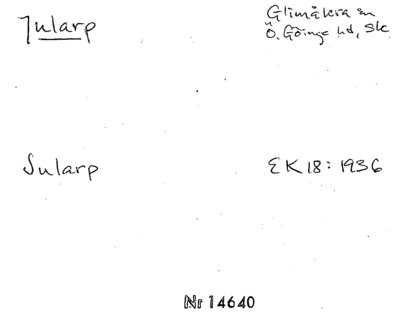 Jularp
Glimåkra sn
Ö. Göinge hd, Sk
Sularp
EK 18: 1936
Nr 14640